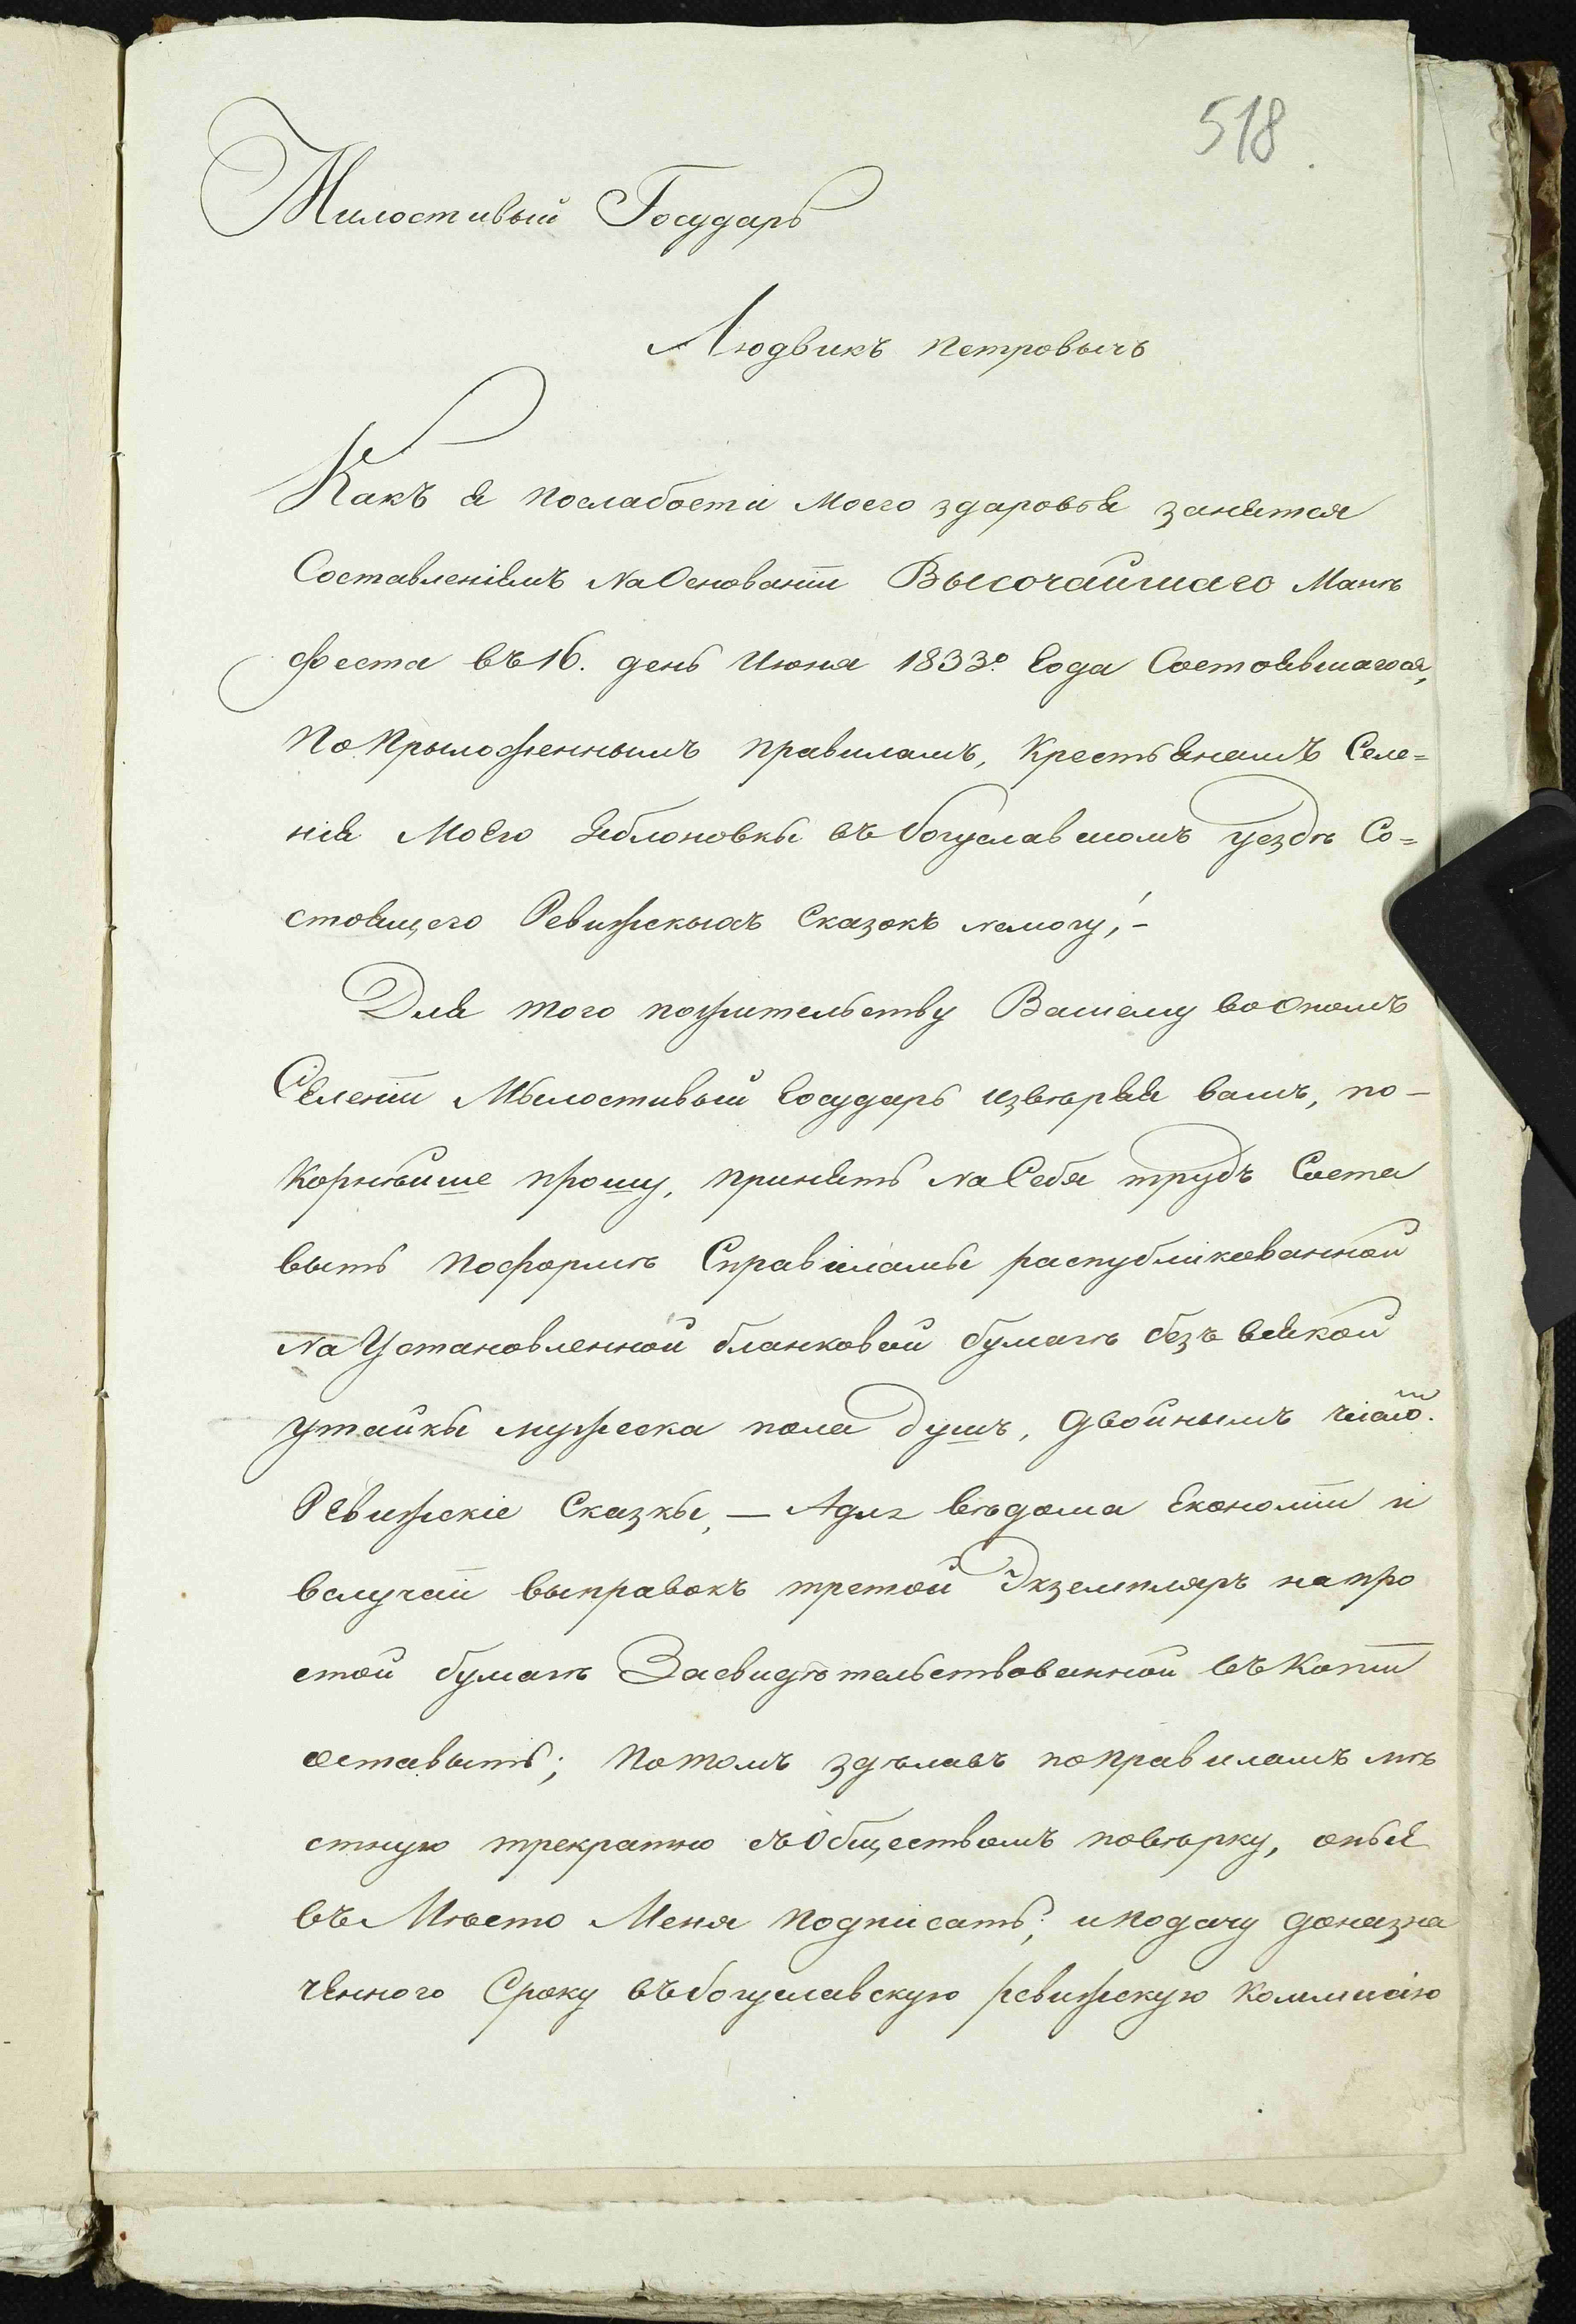 518
Милостивый Государь
Людвикъ Петровычъ
Какъ я послабости моего здаровья занятся
Составленіямъ На Основаніи Высочайшаго Мани
феста въ 16. день Июня 1833го Года Состоявшагося,
По Прыложеннымъ правиламъ, Крестьянамъ Селе=
нія Моего Яблоновкы въ богуславскомъ уездѣ Со=
стоящего Ревижскыхъ Сказокъ немогу;-
Для того пожительству Вашему во Ономъ
Селеніи Мылостивый Государь извѣряя вамъ, по-
Корнѣйше прошу, принять На Себя трудъ Соста
выть Поформѣ Справіламы распубликованной
На Установленной бланковой бумагѣ безъ всякой
утайкы мужеска пола душъ, двойнымъ числом.
Ревижскіе Сказкы, — Адля вѣдома Економіи и
вслучаи выправокъ третой Экземпляръ на про
стой бумагѣ Засвидѣтельствованной въ Копіи
оставыть; Потомъ здѣлавъ поправиламъ мѣ
стную трекратно съ Обществомъ повѣрку, оныя
въ Мѣсто Меня Подписать; и Подачу доназна
ченного Сроку въ богуславскую ревижскую Коммисію